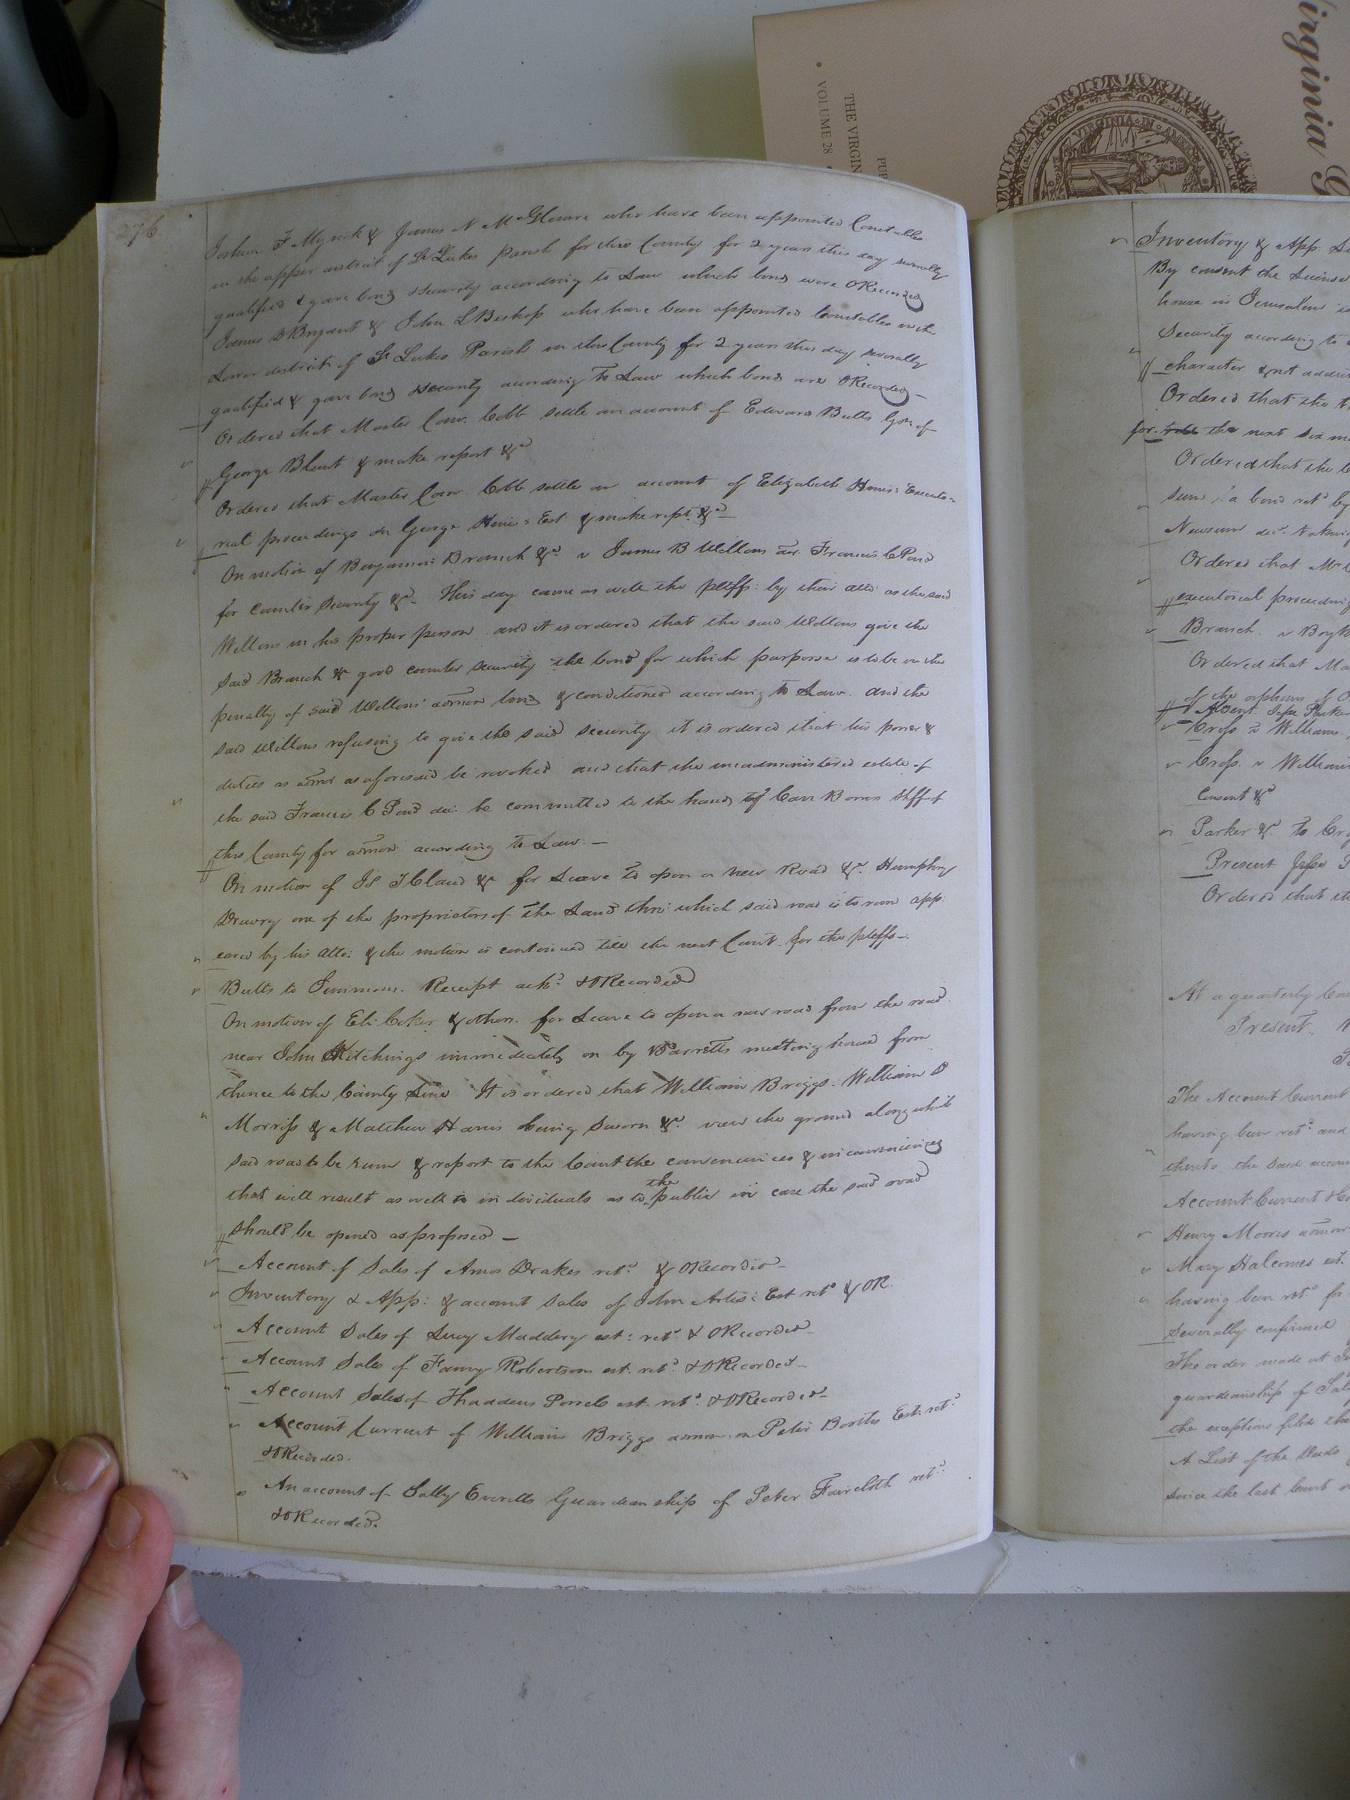 276
Joshua T Myrick & James N McGlemre who have been appointed Constables
in the upper district of St Lukes Parish for this County for 2 years this day severally
qualified & gave bond & security according to Law which bonds were ORecorded
James D Bryant & John L Bishop who have been appointed Constables in the
Lower district of St Lukes Parish in this County for 2 years this day severally
qualified & gave bond security according to Law which bonds are ORecorded
Ordered that Master Com. Cobb settle an account of Edward Butts Gdn of
George Blunt & make report &c
Ordered that Master Com Cobb settle an account of Elizabeth Harris Executo-
rial proceedings on George Harris Est & make rept. &c
On motion of Benjamin Branch &c v James B Wellons adr. Francis C Pond
for Counter Security &c. This day came as well the pltffs. by their atto. as the said
Wellons in his proper person and it is ordered that the said Wellons give the
said Branch & good counter security the bond for which purpose is to be in the
penalty of said Wellons' admon bond & conditioned according to Law. and the
said Wellons refusing to give the said security it is ordered that his power &
duties as admr as aforesaid be revoked and that the unadministered estate of
the said Francis C Pond dec. be committed to the hands of Carr Bowers Shff of
this County for admon according to Law.
On motion of Js. T Claud & for Leave to open a new Road &c. Humphry
Drewry one of the proprietors of the Land thro: which said road is to run app-
eared by his atto. & the motion is continued till the next Court. for the pltffs.
Butts to Simmons. Receipt ackd. & ORecorded
On motion of Eli Coker & others. for Leave to open a new road from the road
near John Kitchings immediately on by Barretts meeting house from
thence to the County Line It is ordered that William Briggs. William D
Morriss & Matthew Harris being sworn &c. view the ground along which
said road to be run & report to the Court the conveniences & inconveniences
that will result as well to individuals as to the public in case the said road
should be opened as proposed
Account of Sales of Amos Drakes retd & ORecorded
Inventory & App: & account Sales of John Artis: Est retd & OR.
Account Sales of Lucy Maddery est: retd & ORecorded
Account Sales of Fanny Robertson est. retd & ORecorded
Account Sales of Thaddeus Powels est. retd. & ORecorded
Account Current of William Briggs admor. on Peter Booths Est. retd.
& ORecorded.
An account of Sally Everetts Guardianship of Peter Faircloth retd.
& ORecorded.
Inventory & App.
By consent the
house in Jerusalem
Security according to
character & not
Ordered that the
for till the next six
Ordered that the
sum a bond retd by
Newsum dec.
Ordered that Mr
executorial proceeding
Branch v
Ordered that
of the orphans of
Absent
Cross v William
Cross v William
Consent &c
Parker &c to
Present Jesse
Ordered that
At a quarterly
Present.
The Account Current
having been retd. and
thereto the said
Account Current
Henry Morris
Mary Halcomes est.
having been retd for
severally confirmed
The order made at
guardianship of
the exceptions filed
A List of the Deeds
since the last Court
Virginia
THE VIRGIN
VOLUME 28
VIRGINIA IN